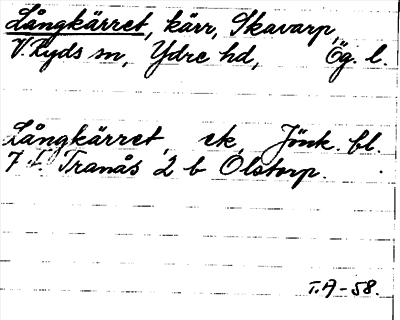 Långkärret, kärr, Skavarp,
V. Ryds sn, Ydre hd, Ög. l.
Långkärret, ek, Jönk. bl.
7 F. Tranås 2 b Olstorp.
T.A-58.